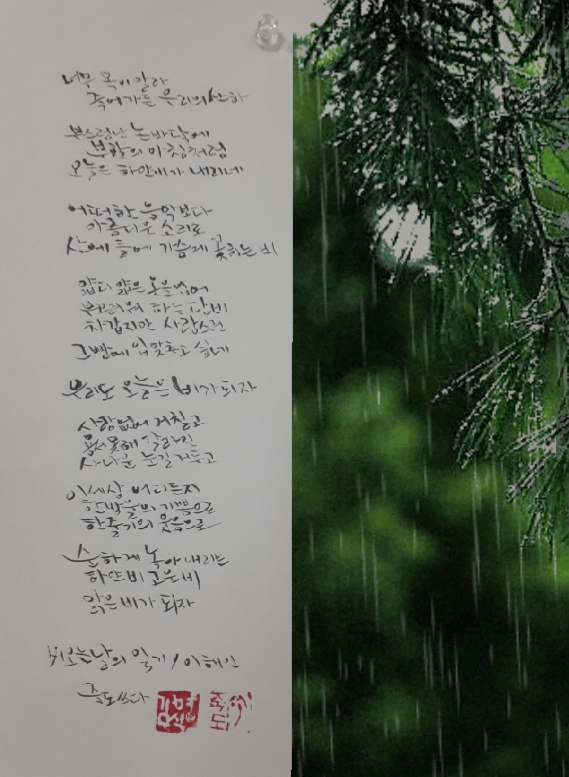 너무 목이 말라
죽어가는 우리의 산하
부스럼난 논바닥에
부활의 아침처럼
오늘은 하얀 비가 내리네
어떠한 음악보다
아름다운 소리로
산에 들에 가슴에 꽂히는 비
얇디 얇은 옷을 입어
부끄러워 하는 단비
차갑지만 사랑스런
그 뺨에 입맞추고 싶네
우리도 오늘은 비가 되자
사랑 없어 거칠고
용서 못해 갈라진
사나운 눈길 거두고
이 세상 어디든지
한 방울의 기쁨으로
한 줄기의 웃음으로
순하게 녹아내리는
하얀 비 고운 비
맑은 비가 되자
비오는 날의 일기 / 이해인
쓰다